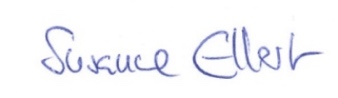 Susanne Ellert